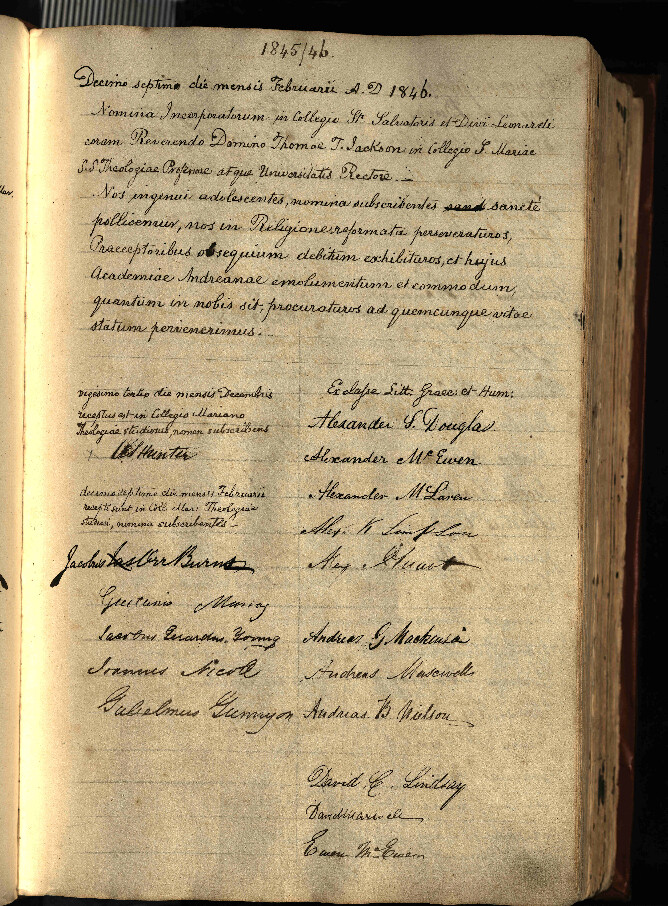 1845/46.
Decimo septimo die mensis Februarii A.D 1846.
Nomina Incorporatorum in Collegio Sti Salvatoris et Divi Leonardi
coram Reverendo Domino Thoma T. Jackson in Collegio S. Mariae
S.S Theologiae Professore atque Universitatis Rectore.
Nos ingenui adolescentes, nomina subscribentes sancte
pollicemur, nos in Religione reformata perseveraturos,
Praeceptoribus obsequium debitum exhibituros, et hujus
Academiae Andreanae emolumentum et commodum,
quantum in nobis sit, procuraturos ad quemcunque vitae
statum pervenerimus.
vigesimo tertio die mensis Decembris
receptus est in Collegio Mariano
Theologiae studiosus, nomen subscribens
Hunter
decimo septimo die mensis Februarii
recepti sunt in Coll. Mar: Theologiae
studiosi, nomina subscribentes
Jacobus Orr Burns
Murray
Jacobus Young
Ioannes Nicoll
Gulielmus Gunnyon
E classe Litt. Graec: et Hum:
Alexander S. Douglas
Alexander McEwen
Alexander McLaren
Alex. K Simpson
Alex Stuart
Andreas G Mackenzie
Andreas Maxwell
Andreas B Wilson
David C. Lindsay
David Maxwell
Ewen McEwen